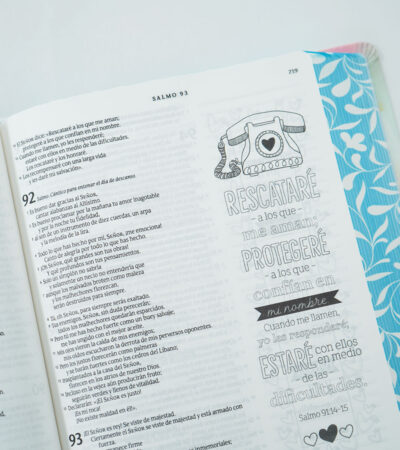 SALMO 93
719
El Señor dice: «Rescataré a los que me aman;
protegeré a los que confían en mi nombre.
Cuando me llamen, yo les responderé;
estaré con ellos en medio de las dificultades.
Los rescataré y los honraré.
Los recompensaré con una larga vida
y les daré mi salvación».
92 Salmo. Cántico para entonar el día de descanso.
Es bueno dar gracias al Señor,
cantar alabanzas al Altísimo.
Es bueno proclamar por la mañana tu amor inagotable
y por la noche tu fidelidad,
al son de un instrumento de diez cuerdas, un arpa
y la melodía de lira.
Todo lo que has hecho por mí, Señor, ¡me emociona!
Canto de alegría por todo lo que has hecho.
¡Oh Señor, qué grandes son tus obras!
Y qué profundos son tus pensamientos.
Solo un simplón no sabría,
y solamente un necio no entendería que
aunque los malvados broten como maleza
y los malhechores florezcan,
serán destruidos para siempre.
Tú, oh Señor, para siempre serás exaltado.
Tus enemigos, Señor, sin duda perecerán;
todos los malhechores quedarán esparcidos.
Pero tú me has hecho fuerte como un buey salvaje;
me has ungido con el mejor aceite.
Mis ojos vieron la caída de mis enemigos;
mis oídos escucharon la derrota de mis perversos oponentes.
Pero los justos florecerán como palmeras
y se harán fuertes como los cedros del Líbano;
trasplantados a la casa del Señor,
florecen en los atrios de nuestro Dios.
Incluso en la vejez aún producirán fruto;
seguirán verdes y llenos de vitalidad.
Declararán: «¡El Señor es justo!
¡Es mi roca!
¡No existe maldad en él!».
93 ¡El Señor es rey! Se viste de majestad.
Ciertamente el Señor se viste de majestad y está armado con
fuerza.
RESCATARÉ
a los que
me aman;
PROTEGERÉ
a los que
confían en
mi nombre
Cuando me llamen,
yo les responderé;
ESTARÉ con ellos
en medio
de las
dificultades.
Salmo 91:14-15